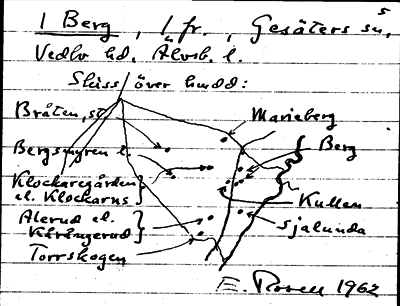 1 Berg, 1 fr., Gesäters sn,
Vedbo hd. Älvsb. l.
Skiss över hmdd:
Bråten, st
Marieberg
Bergsmyren l.
Berg
Klockaregården
el. Klockarns
Kullen
Alerud el.
Sjalunda
Torrskogen
E. Rosell 1962